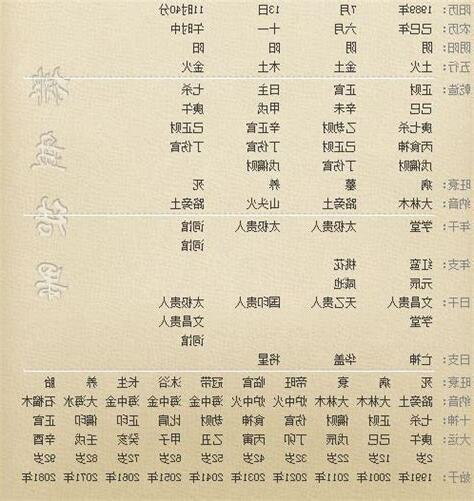 阳历: 1989年 7月 13日 11时40分
农历: 己巳年 六月 十一 午时中
阴阳: 阴 阴 阳 阳
五行: 土火 金土 木土 金火
乾造: 正财 正官 日主 七杀
己巳 辛未 甲戌 庚午
庚七杀 乙劫财 辛正官 己正财
丙食神 己正财 丁伤官 丁伤官
戊偏财 丁伤官 戊偏财
旺衰: 病 墓 养 死
纳音: 大林木 路旁土 山头火 路旁土
年干: 学堂 太极贵人 太极贵人 词馆
词馆
年支: 红鸾 桃花
元辰 咸池
日干: 文昌贵人 天乙贵人 国印贵人 太极贵人
学堂 文昌贵人
词馆
日支: 亡神 华盖 将星
旺衰: 死 病 衰 帝旺 临官 冠带 沐浴 长生 养 胎
纳音: 路旁土 大林木 大林木 炉中火 炉中火 海中金 海中金 大海水 大海水 石榴木
十神: 七杀 正财 偏财 伤官 食神 劫财 比肩 正印 偏印 正官
大运: 庚午 己巳 戊辰 丁卯 丙寅 乙丑 甲子 癸亥 壬戌 辛酉
2岁 12岁 22岁 32岁 42岁 52岁 62岁 72岁 82岁 92岁
始于: 1991年 2001年 2011年 2021年 2031年 2041年 2051年 2061年 2071年 2081年
排盘结果